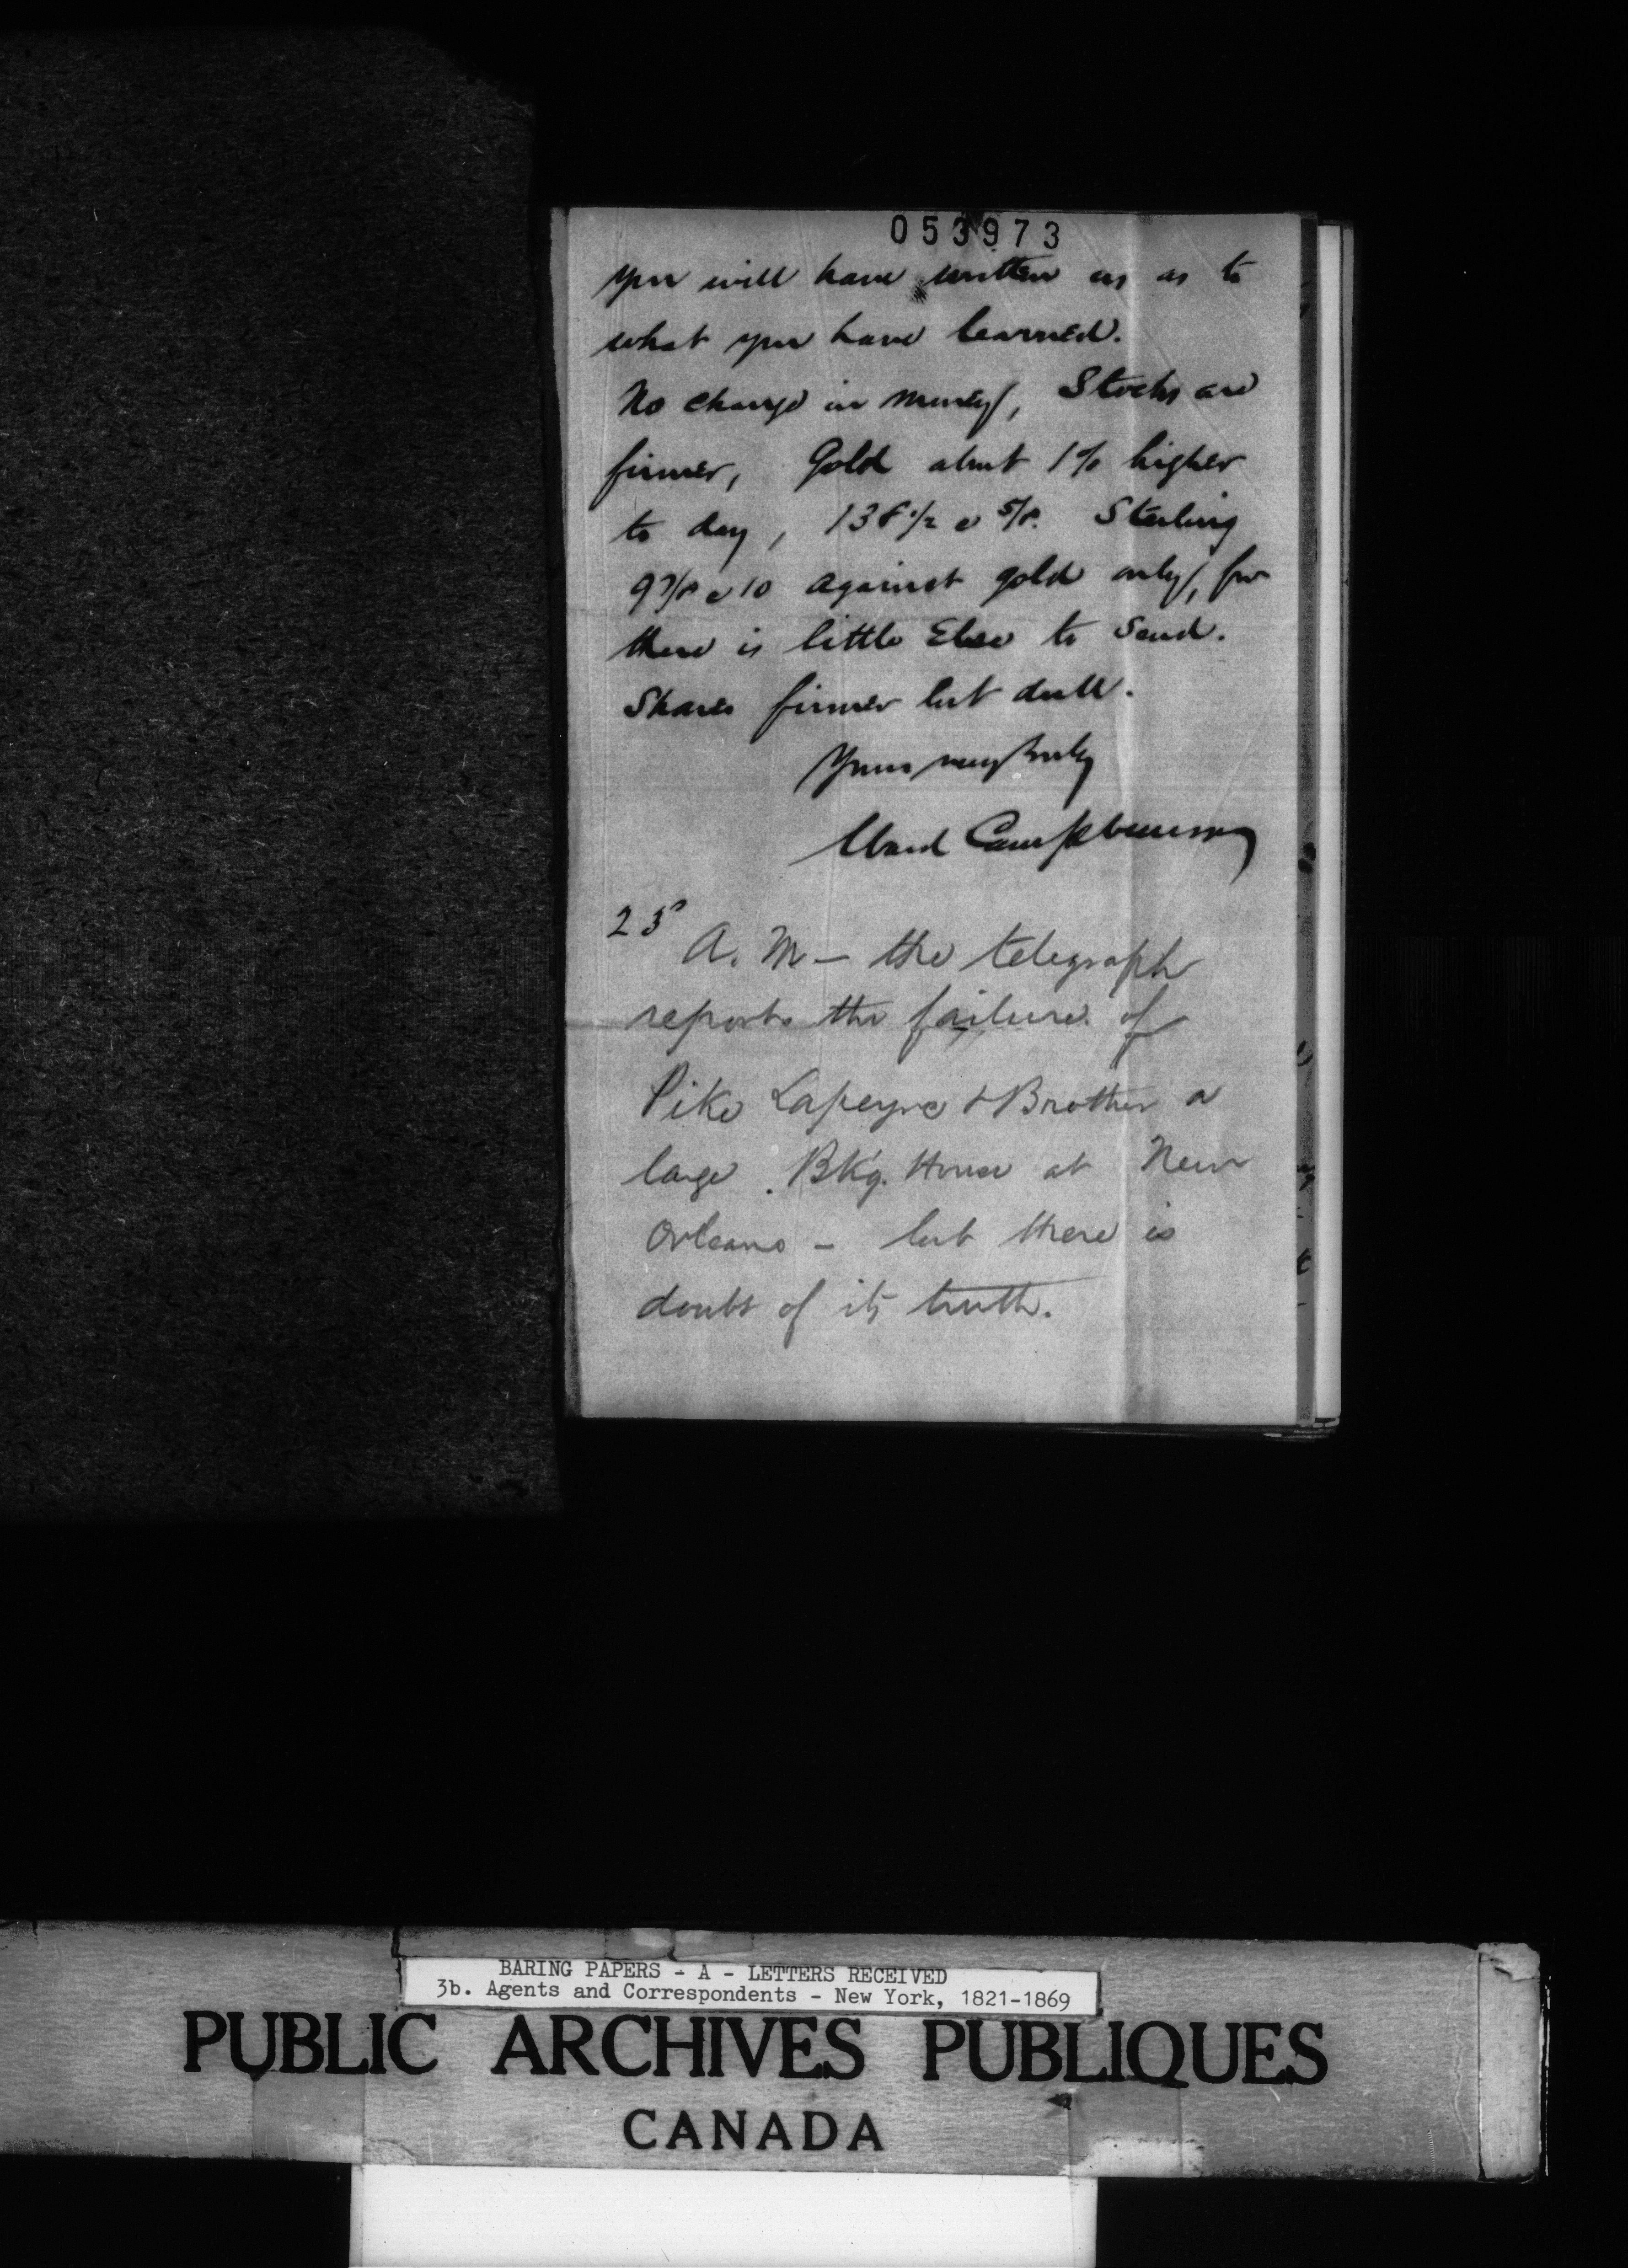 053973
you will have written us as to
what you have learned.
No change in money, Stocks are
firmer, Gold about 1% higher
to day, 138 1/2 @ 5/8. Sterling
9 7/8 @ 10 against gold only, for
there is little Else to Send.
Shares firmer but dull.
Yours very truly
Ward Campbell
23d
A. M — the telegraph
reports the failure of
Pike Lapeyre & Brother a
large Bkg. House at New
Orleans — but there is
doubt of its truth.
BARING PAPERS - A - LETTERS RECEIVED
3b. Agents and Correspondents - New York, 1821-1869
PUBLIC ARCHIVES PUBLIQUES
CANADA